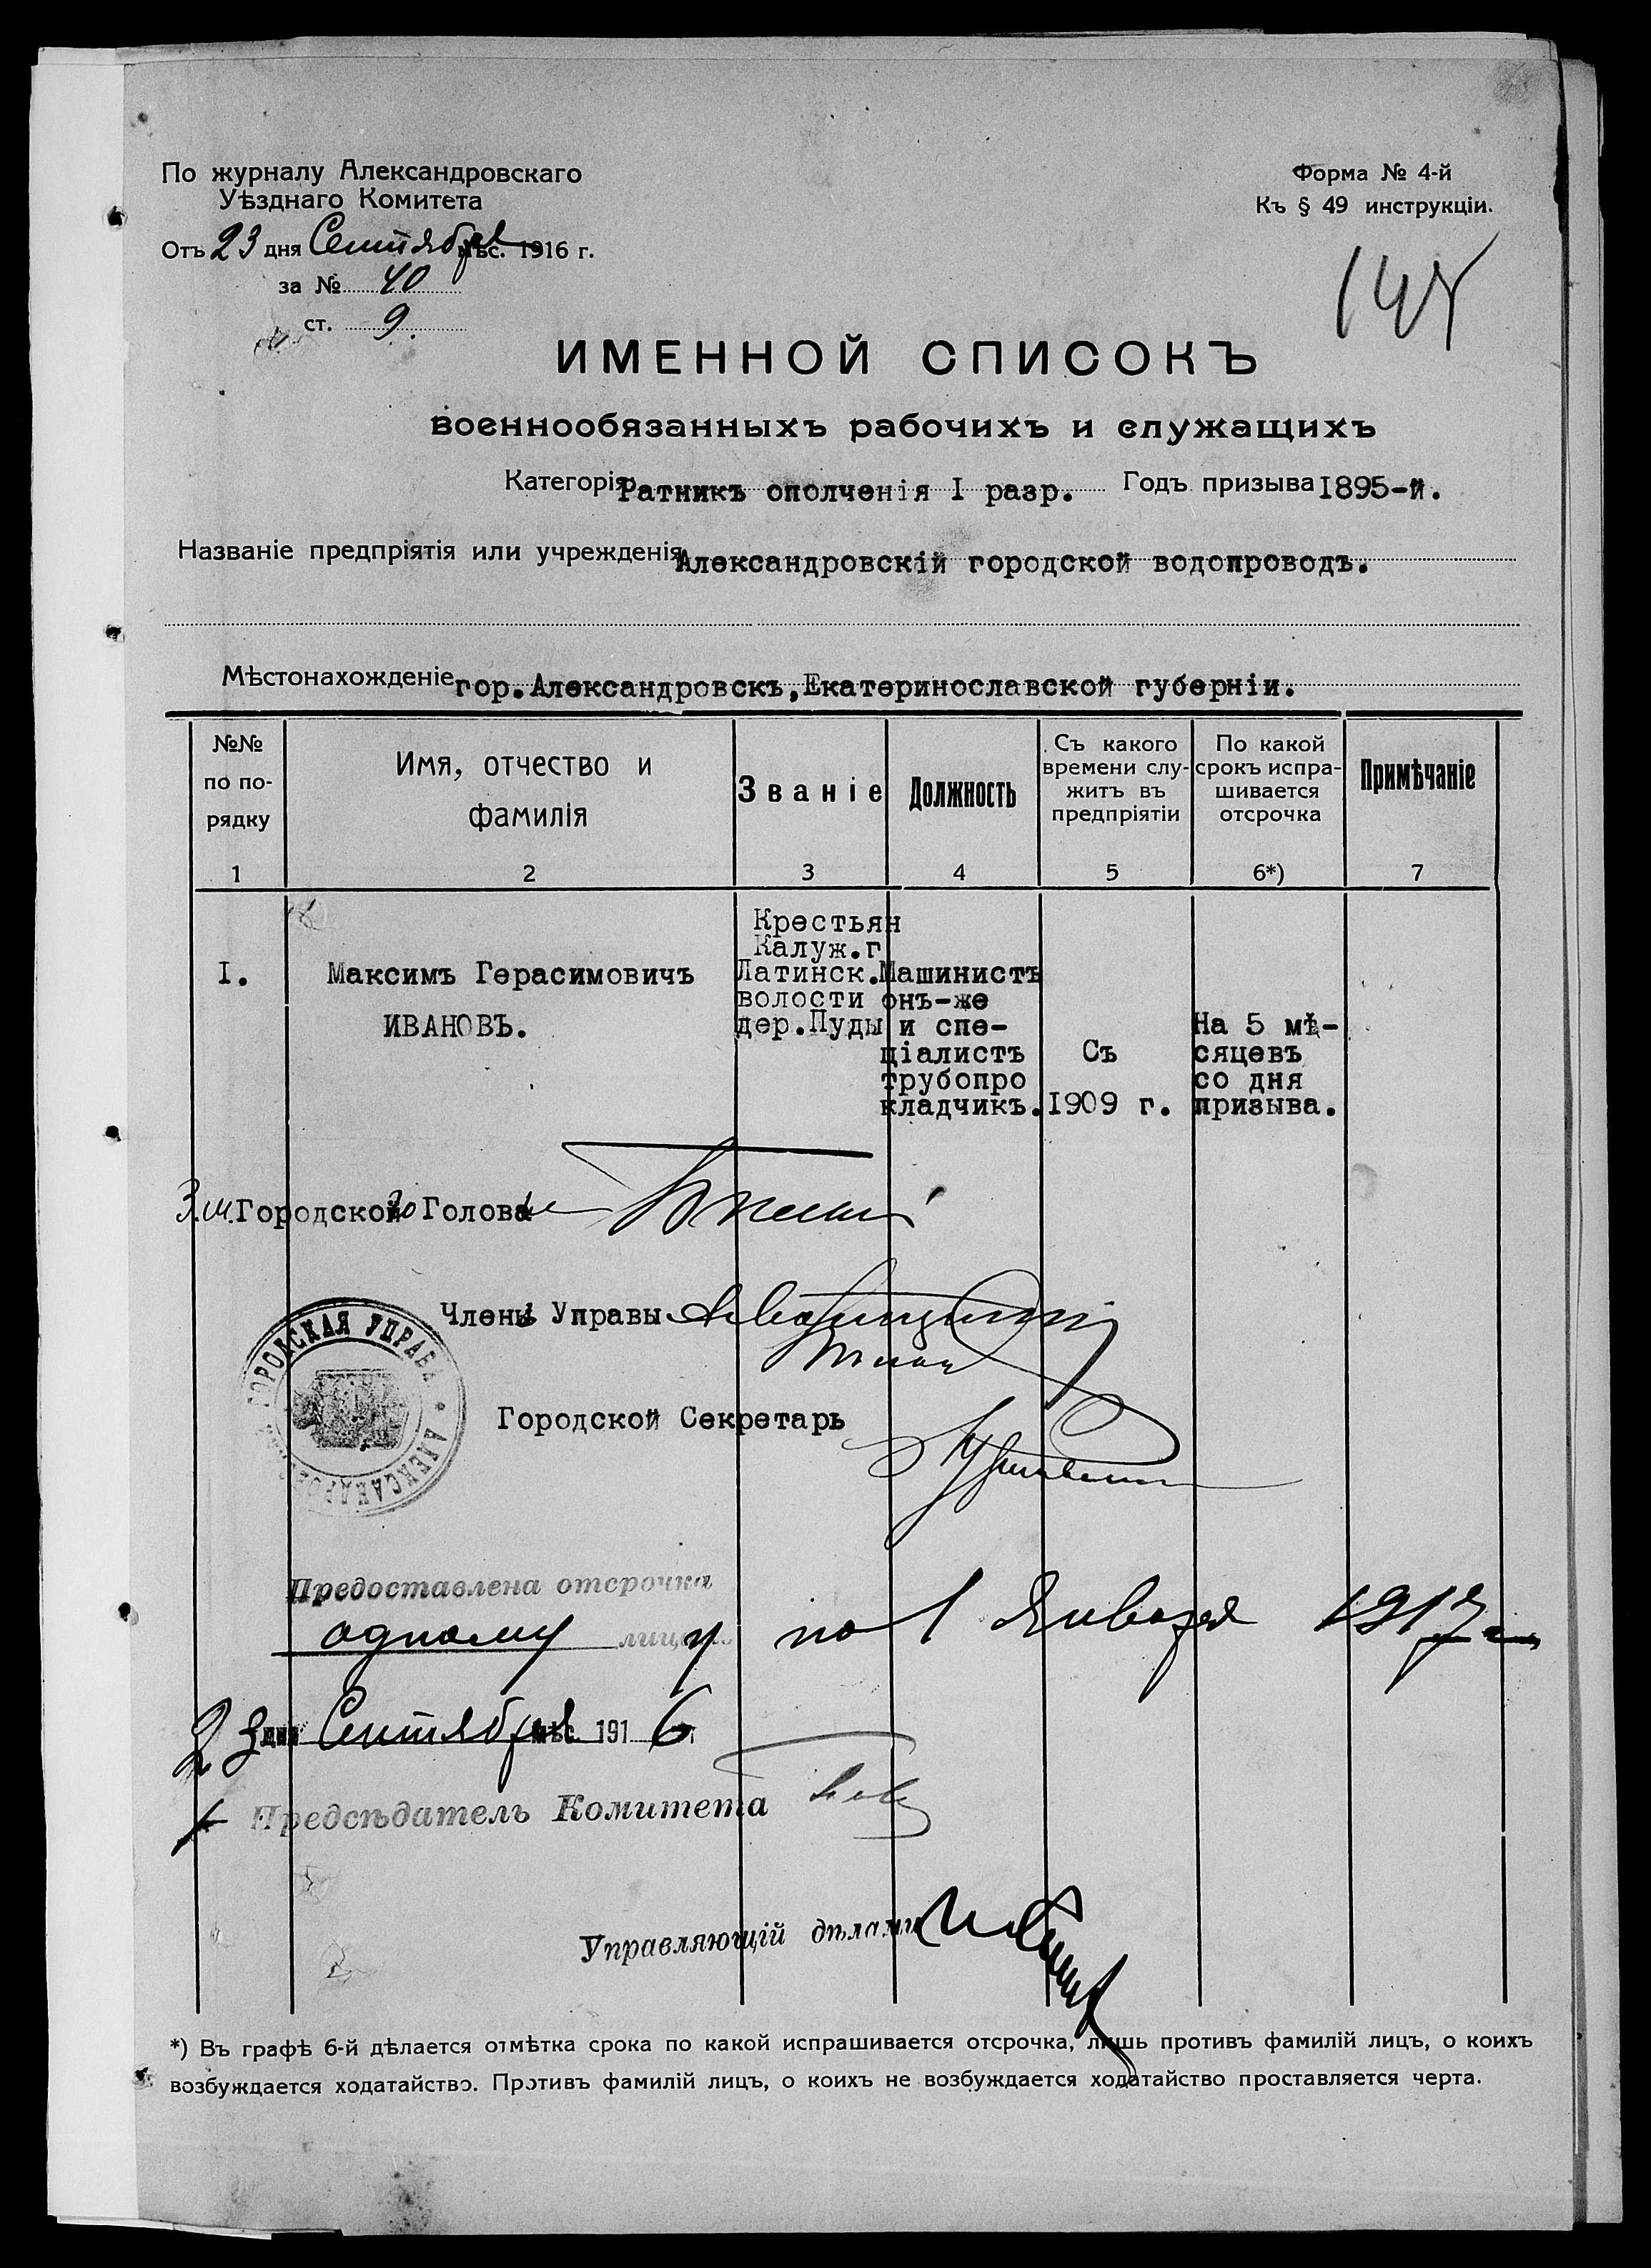 По журналу Александровскаго
Уѣзднаго Комитета
Отъ 23 дня Сентября мѣс. 1916 г.
за № 40
ст. 9.
Форма № 4-й
Къ § 49 инструкціи.
ИМЕННОЙ СПИСОКЪ
военнообязанныхъ рабочихъ и служащихъ
Категорія Ратникъ ополченія I разр. Годъ призыва 1895-й.
Названіе предпріятія или учрежденія Александровскій городской водопроводъ.
Мѣстонахожденіе гор.Александровскъ,Екатеринославской губерніи.
№№
по по-
рядку
1
Имя, отчество и
фамилія
2
Званіе
3
Должность
4
Съ какого
времени слу-
житъ въ
предпріятіи
5
По какой
срокъ испра-
шивается
отсрочка
6*)
Примѣчаніе
7
I.
Максимъ Герасимовичъ
ИВАНОВЪ.
Крестьян
Калуж.г
Латинск.
волости
дер.Пуды
Машинистъ
онъ-же
и спе-
ціалистъ
трубопро
кладчикъ.
Съ
1909 г.
На 5 мѣ-
сяцевъ
со дня
призыва.
Городской Голова
Члены Управы
Городской Секретарь
ГОРОДСКАЯ УПРАВА
Предоставлена отсрочка
одному лицу по 1 Января 1917 г.
23 дня Сентября мѣс. 1916 г.
Предсѣдатель Комитета
Управляющій дѣлами
*) Въ графѣ 6-й дѣлается отмѣтка срока по какой испрашивается отсрочка, лишь противъ фамилій лицъ, о коихъ
возбуждается ходатайство. Противъ фамилій лицъ, о коихъ не возбуждается ходатайство проставляется черта.